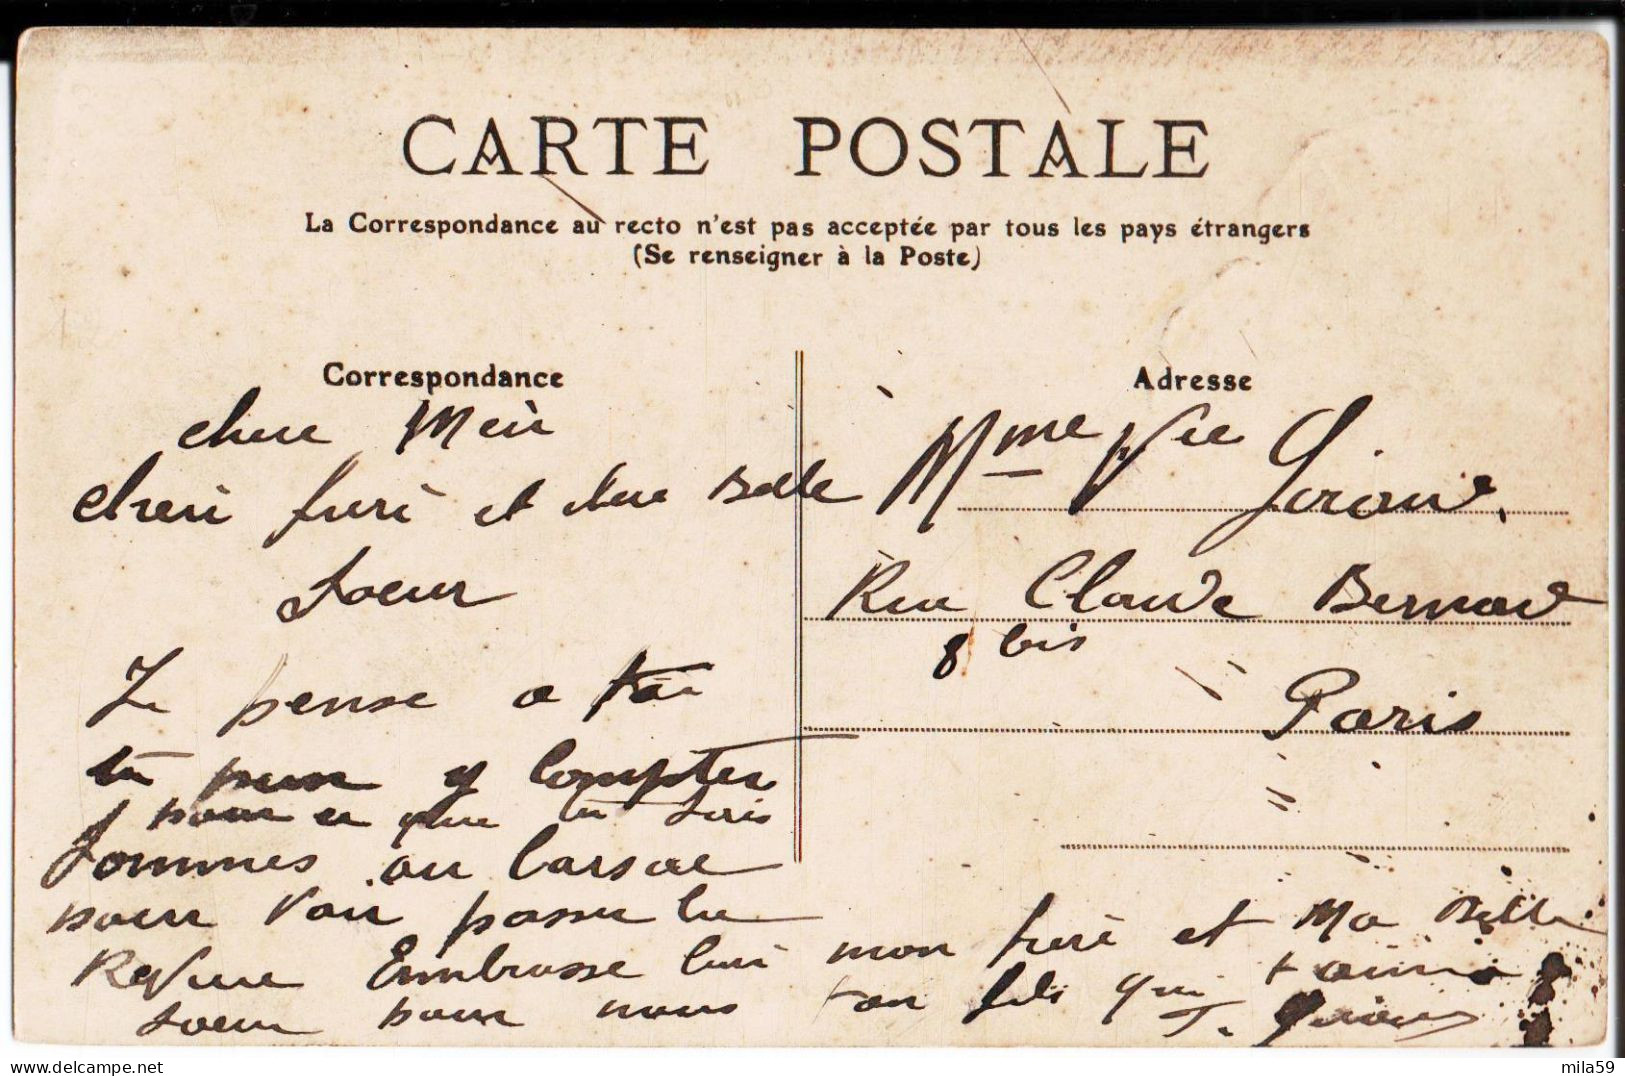 CARTE POSTALE
La Correspondance au recto n'est pas acceptée par tous les pays étrangers
(Se renseigner à la Poste)
Correspondance
Adresse
chere Mere
cheri frere et chere Belle
soeur
Je pense a toi
tu peux y compter
nous
sommes au Larsac
pour voir passer la
Revue Embrasse bien mon frere et Ma Belle
soeur pour nous ton fils qui t'aime
Mme Vve
Rue Claude Bernard
8 bis
Paris
mila59